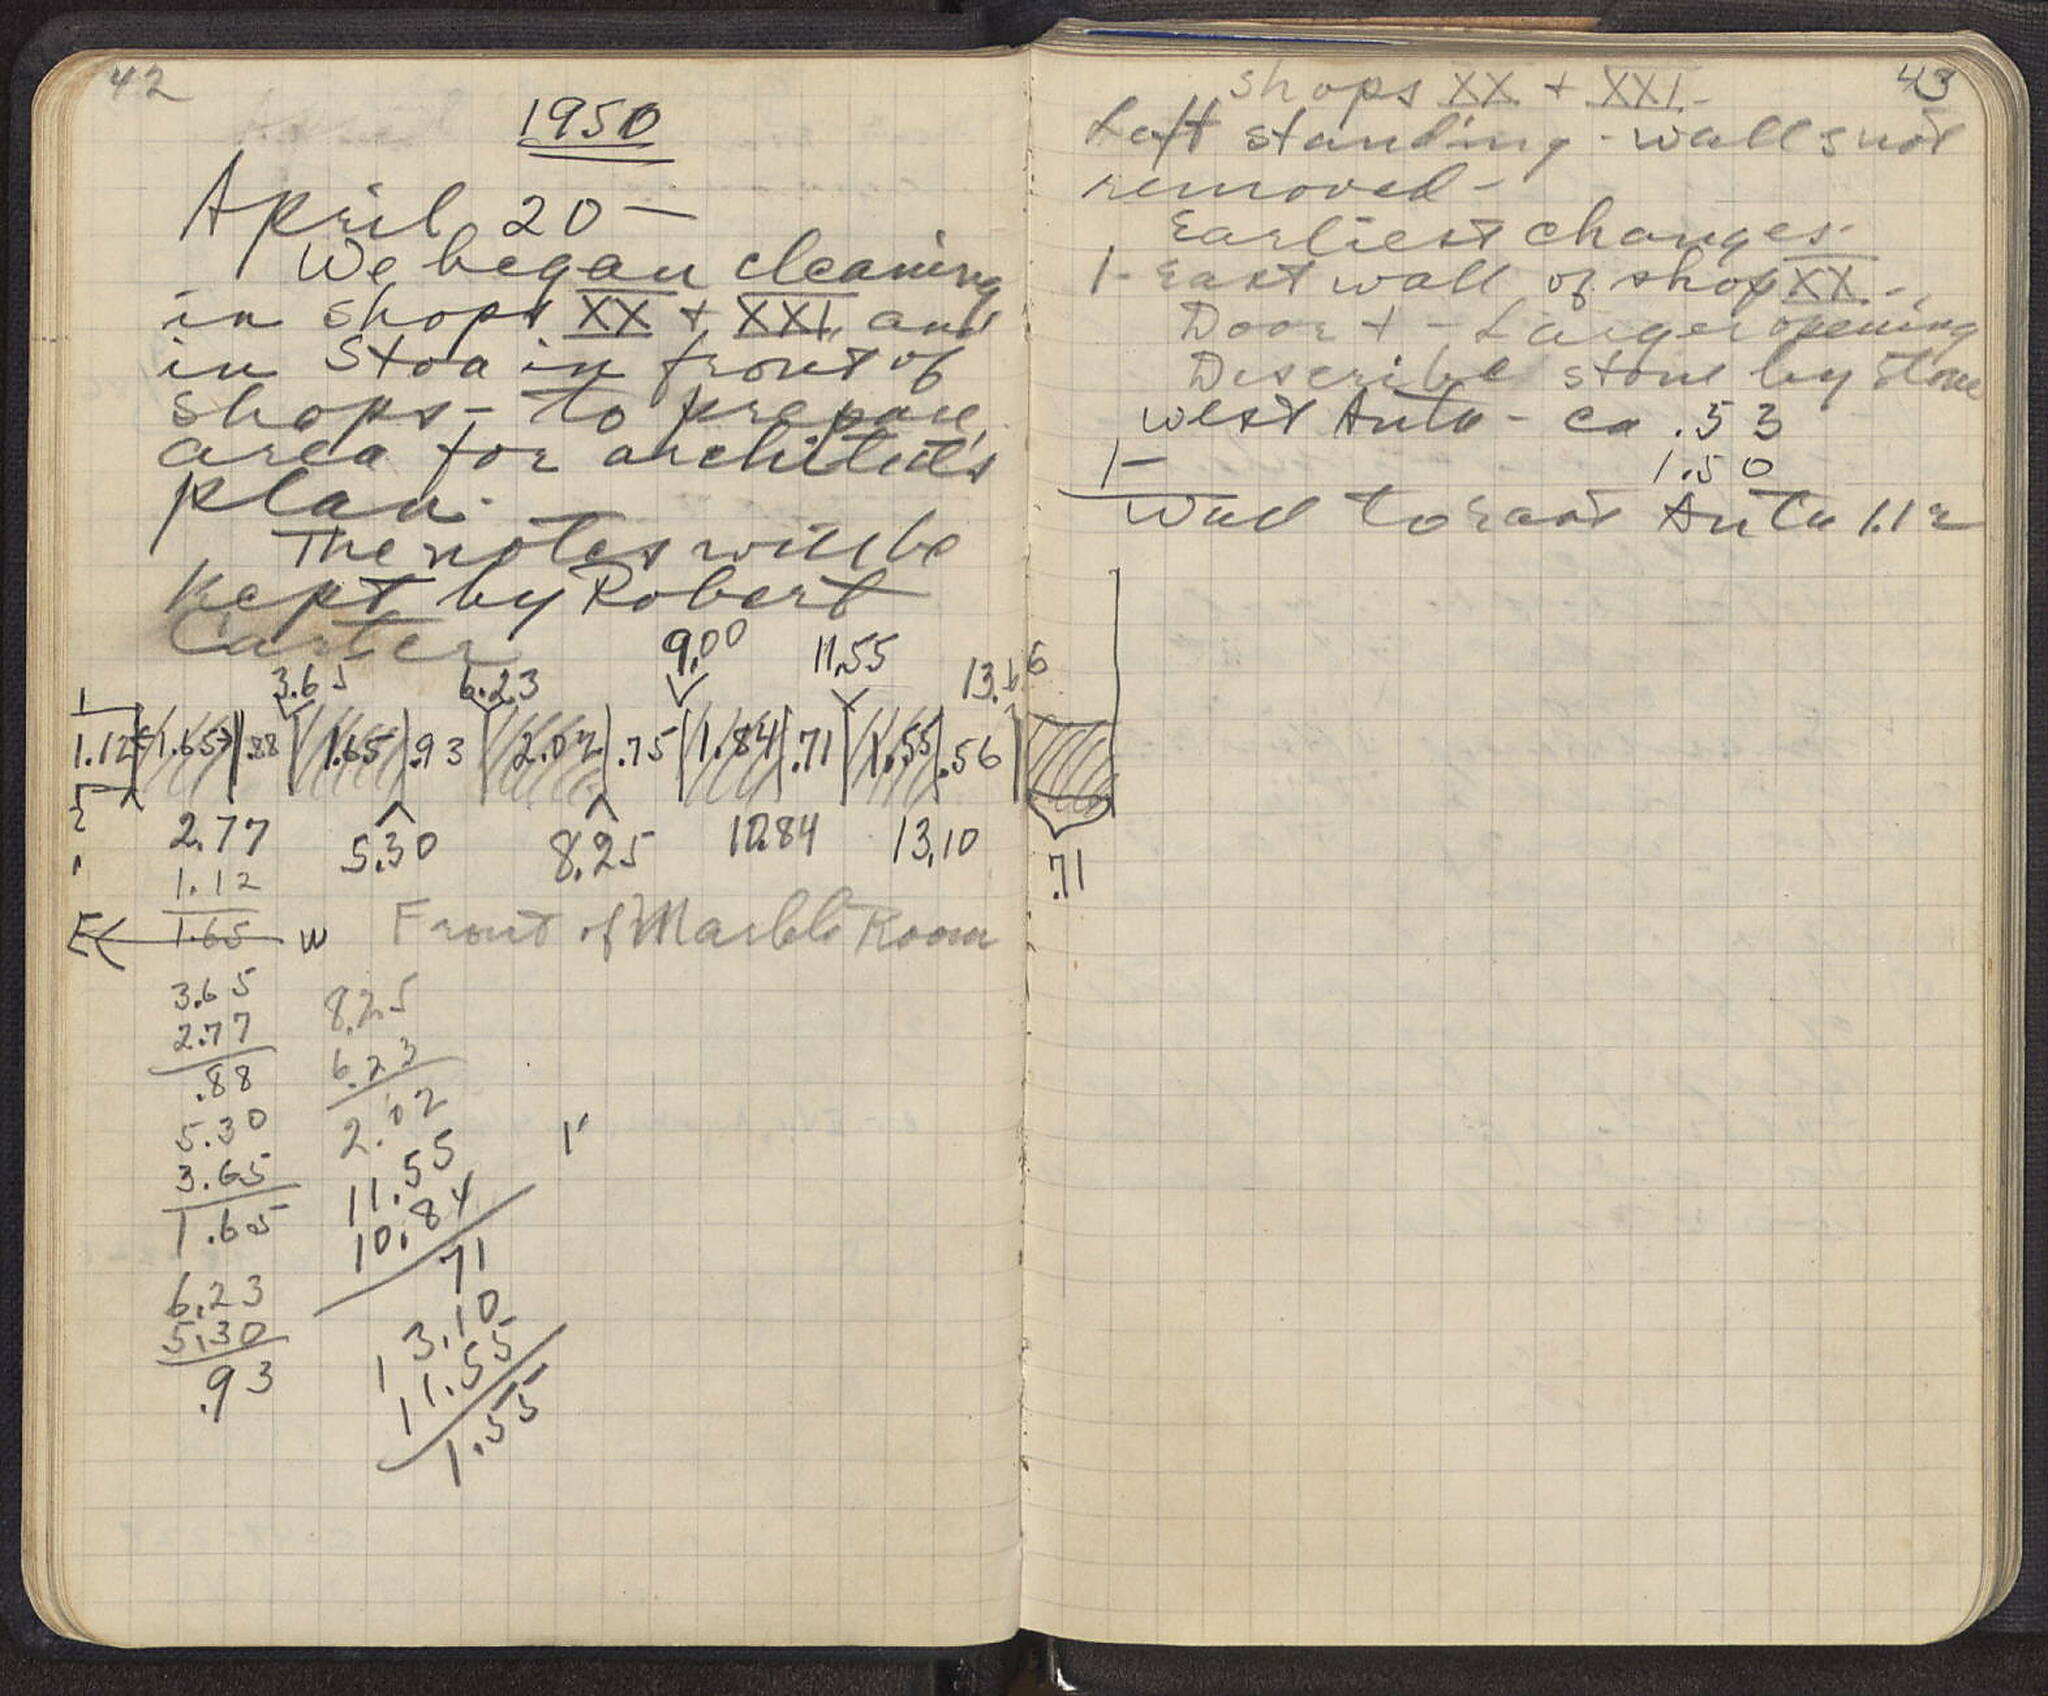 42
1950
April 20 —
We began cleaning
in shops XX + XXI, and
in Stoa in front of
shops - to prepare
area for architect's
plan.
The notes will be
kept by Robert
Carter
3.65 6.23 9.00 11.55 13.66
1.12 1.65 .88 1.65 .93 2.02 .75 1.84 .71 1.55 .56
2.77 5.30 8.25 10.84 13.10
1.12
1.65
E W Front of Marble Room
3.65
2.77
.88
5.30
3.65
1.65
6.23
5.30
.93
8.25
6.23
2.02
11.55
10.84
71
13.10
11.55
1.55
43
Shops XX + XXI -
Left standing - walls not
removed -
Earliest changes -
1- East wall of shop XX -
Door + - Larger opening
Describe stone by stone
West Anta - ca .53
1- 1.50
Wall to east Anta 1.12
.71